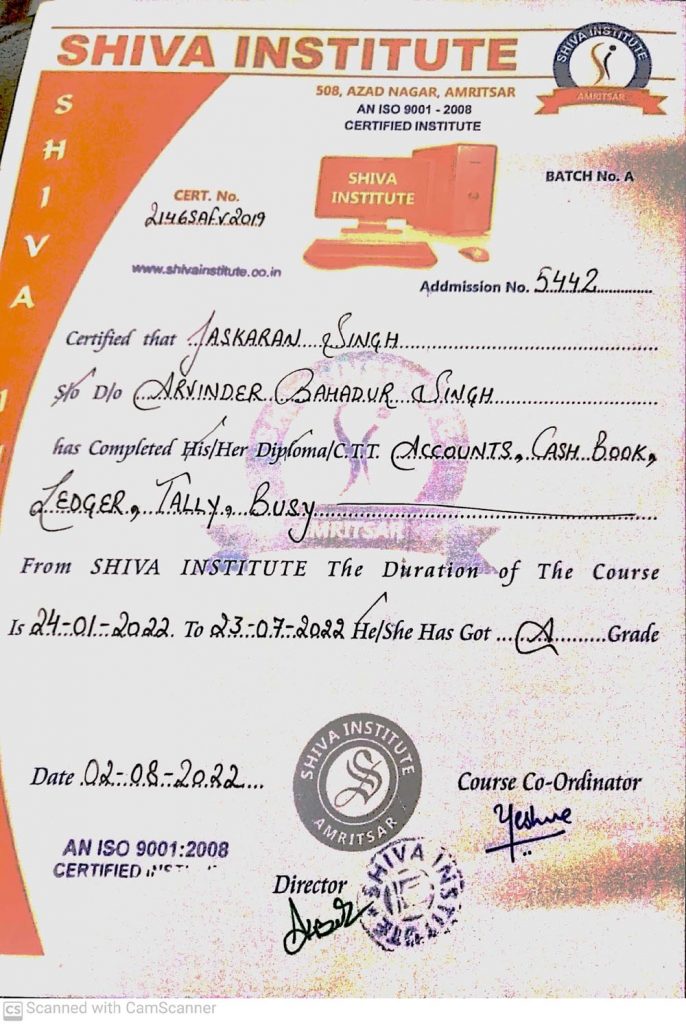 SHIVA INSTITUTE
SHIVA INSTITUTE
AMRITSAR
508, AZAD NAGAR, AMRITSAR
AN ISO 9001 - 2008
CERTIFIED INSTITUTE
SHIVA
SHIVA
INSTITUTE
BATCH No. A
CERT. No.
2146SAFV2019
www.shivainstitute.co.in
Addmission No. 5442
Certified that JASKARAN SINGH
S/o D/o ARVINDER BAHADUR SINGH
has Completed His/Her Diploma/C.T.T. ACCOUNTS, CASH BOOK,
LEDGER, TALLY, BUSY
AMRITSAR
From SHIVA INSTITUTE The Duration of The Course
Is 24-01-2022 To 23-07-2022 He/She Has Got A Grade
SHIVA INSTITUTE
AMRITSAR
Date 02-08-2022
Course Co-Ordinator
AN ISO 9001:2008
CERTIFIED
Director
SHIVA INSTITUTE
CS Scanned with CamScanner